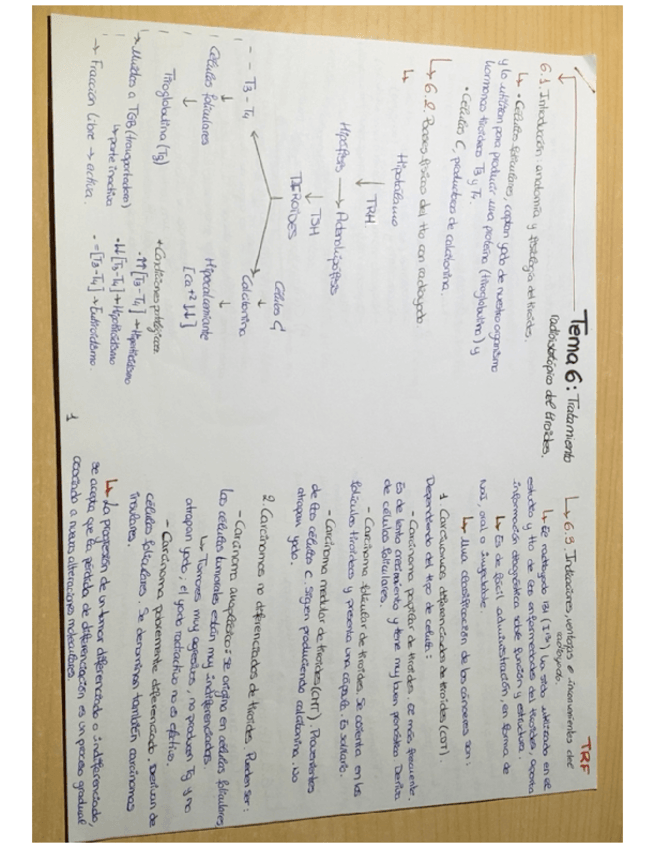 TRF
Tema 6: Tratamiento
radioisotópico del tiroides.
6.1. Introducción: anatomía y fisiología del tiroides.
↳ • Células foliculares, captan yodo de nuestro organismo
y lo utilizan para producir una proteína (tiroglobulina) y
hormonas tiroideas T3 y T4.
• Células C, productoras de calcitonina.
↳ 6.2. Bases físicas del tto con radioyodo.
↳ Hipotálamo
↓ TRH
Hipófisis → Adenohipófisis
↓ TSH
TIROIDES
T3 - T4
Células foliculares
↓
Tiroglobulina (Tg)
→ Unidos a TGB (transportadores)
↳ parte inactiva
→ Fracción libre → activa.
Células C
↓
Calcitonina
↓
Hipocalcemiante
[Ca+2 ↓↓]
* Condiciones patológicas
• ↑↑ [T3-T4] → Hipertiroidismo
• ↓↓ [T3-T4] → Hipotiroidismo
• = [T3-T4] → Eutiroidismo.
1
↳ 6.3 Indicaciones, ventajas e inconvenientes del
radioyodo.
↳ El radioyodo 131 (I-131) ha sido utilizado en el
estudio y tto de las enfermedades del tiroides, aporta
información diagnóstica sobre función y estructura.
↳ Es de fácil administración, en forma de
oral o inyectable.
↳ Una clasificación de los cánceres son:
1. Carcinomas diferenciados de tiroides (CDT).
Dependiendo del tipo de célula:
- Carcinoma papilar de tiroides. Es más frecuente.
Es de lento crecimiento y tiene muy buen pronóstico. Deriva
de células foliculares.
- Carcinoma folicular de tiroides. Se asienta en los
folículos tiroideos y presenta una cápsula. Es solitario.
- Carcinoma medular de tiroides (CMT). Provenientes
de las células C. Siguen produciendo calcitonina. No
atrapan yodo.
2. Carcinomas no diferenciados de tiroides. Pueden ser:
- Carcinoma anaplásico: se origina en células foliculares
Las células tumorales están muy indiferenciadas.
↳ Tumores muy agresivos, no producen Tg y no
atrapan yodo, el yodo radiactivo no es efectivo.
- Carcinoma pobremente diferenciado. Derivan de
células foliculares. Se denominan también carcinomas
insulares.
↳ La progresión de un tumor diferenciado a indiferenciado,
se acepta que la pérdida de diferenciación es un proceso gradual
asociado a nuevas alteraciones moleculares.